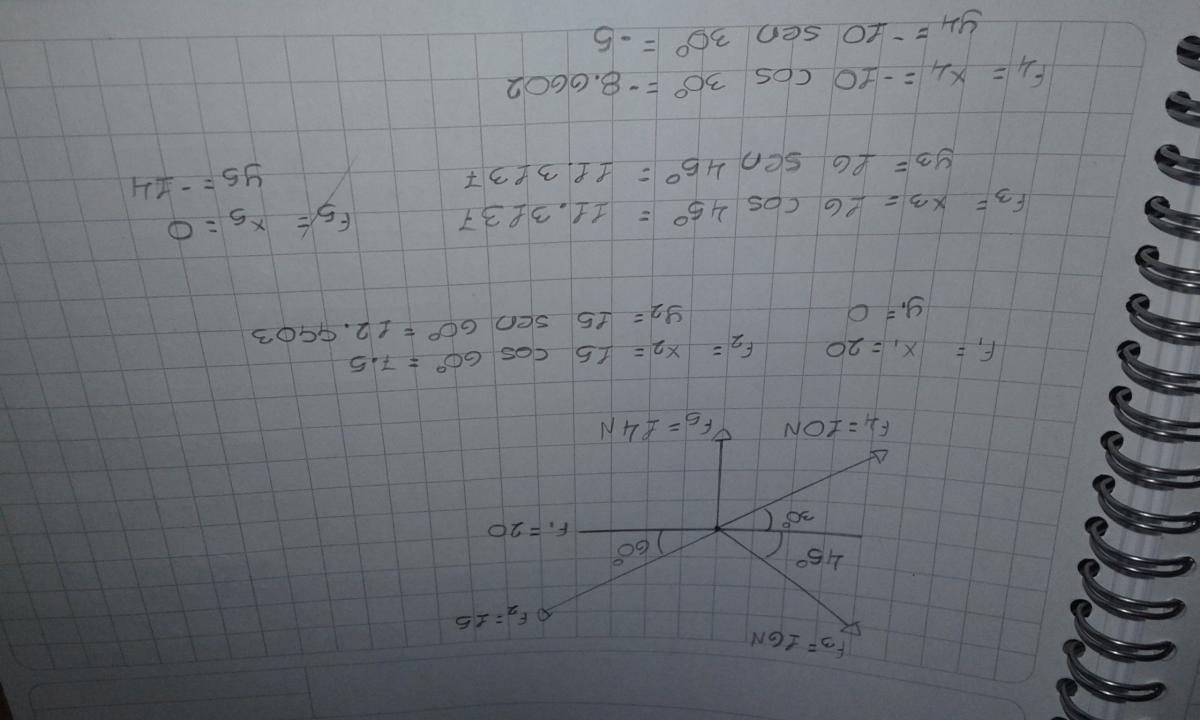 F₃=16N
F₂=15
45°
60°
F₁=20
30°
F₄=10N F₅=14N
F₁ = x₁=20 F₂= x₂= 15 cos 60° = 7.5
y₁=0 y₂= 15 sen 60° = 12.9903
F₃= x₃= 16 cos 45° = 11.3137 F₅= x₅=0
y₃= 16 sen 45° = 11.3137 y₅=-14
F₄= x₄=-10 cos 30° =-8.6602
y₄=-10 sen 30° =-5